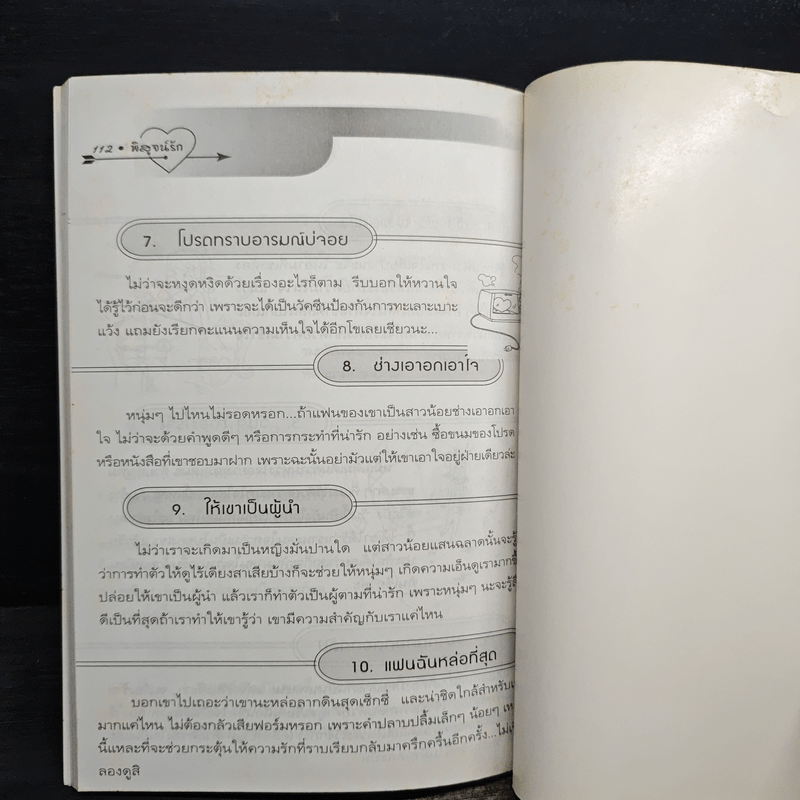 112 • พิสูจน์รัก
7. โปรดทราบอารมณ์บ่จอย
ไม่ว่าจะหงุดหงิดด้วยเรื่องอะไรก็ตาม รีบบอกให้หวานใจ
ได้รู้ไว้ก่อนจะดีกว่า เพราะจะได้เป็นวัคซีนป้องกันการทะเลาะเบาะ
แว้ง แถมยังเรียกคะแนนความเห็นใจได้อีกโขเลยเชียวนะ...
8. ช่างเอาอกเอาใจ
หนุ่มๆ ไปไหนไม่รอดหรอก...ถ้าแฟนของเขาเป็นสาวน้อยช่างเอาอกเอา
ใจ ไม่ว่าจะด้วยคำพูดดีๆ หรือการกระทำที่น่ารัก อย่างเช่น ซื้อขนมของโปรด
หรือหนังสือที่เขาชอบมาฝาก เพราะฉะนั้นอย่ามัวแต่ให้เขาเอาใจอยู่ฝ่ายเดียวล่ะ
9. ให้เขาเป็นผู้นำ
ไม่ว่าเราจะเกิดมาเป็นหญิงมั่นปานใด แต่สาวน้อยแสนฉลาดนั้นจะรู้
ว่าการทำตัวให้ดูไร้เดียงสาเสียบ้างก็จะช่วยให้หนุ่มๆ เกิดความเอ็นดูเรามากขึ้
ปล่อยให้เขาเป็นผู้นำ แล้วเราก็ทำตัวเป็นผู้ตามที่น่ารัก เพราะหนุ่มๆ นะจะรู้สึ
ดีเป็นที่สุดถ้าเราทำให้เขารู้ว่า เขามีความสำคัญกับเราแค่ไหน
10. แฟนฉันหล่อที่สุด
บอกเขาไปเถอะว่าเขานะหล่อลากดินสุดเซ็กซี่ และน่าชิดใกล้สำหรับเ
มากแค่ไหน ไม่ต้องกลัวเสียฟอร์มหรอก เพราะคำปลาบปลื้มเล็กๆ น้อยๆ เห
นี้แหละที่จะช่วยกระตุ้นให้ความรักที่ราบเรียบกลับมาครึกครื้นอีกครั้ง...ไม่เ
ลองดูสิ